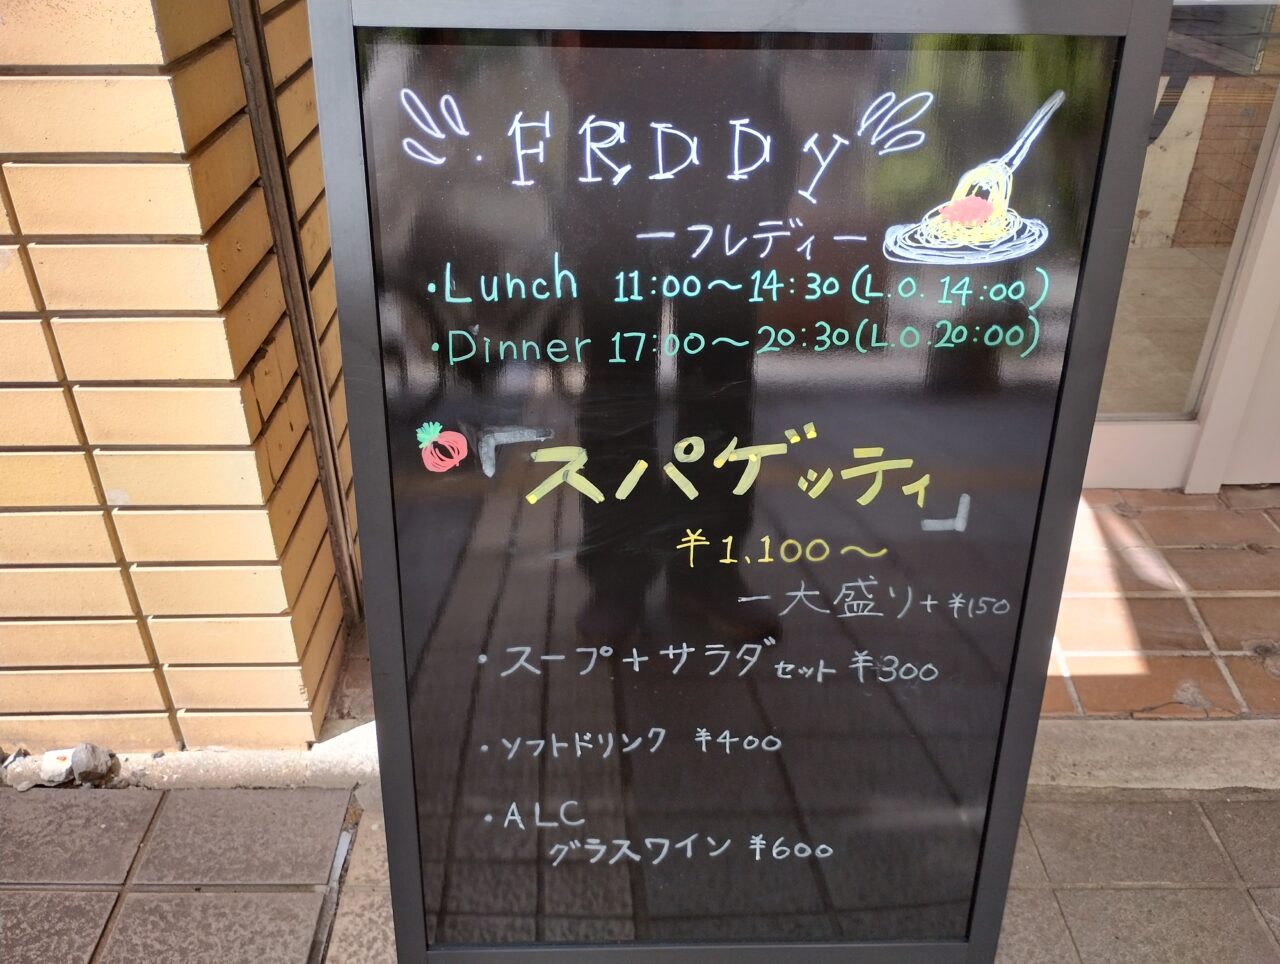 FRDDY
ーフレディー
・Lunch 11:00〜14:30(L.O. 14:00)
・Dinner 17:00〜20:30(L.O.20:00)
「スパゲッティ」
¥1,100〜
ー大盛り+¥150
・スープ+サラダセット ¥300
・ソフトドリンク ¥400
・ALC
グラスワイン ¥600